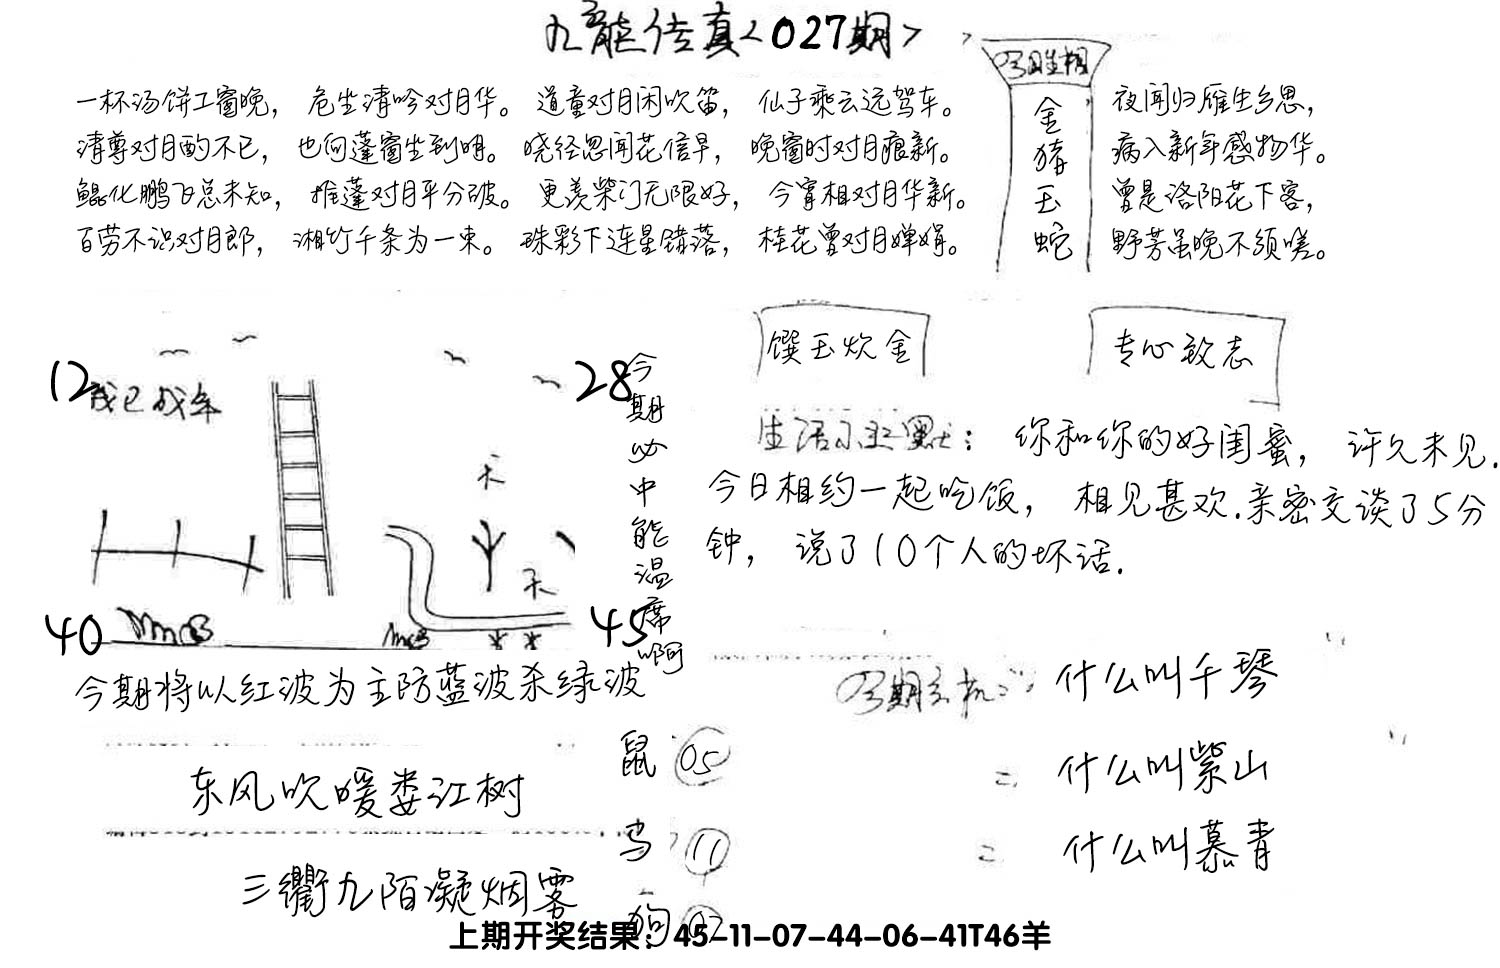 九龙传真<027期>
一杯汤饼工窗晚，危坐清吟对月华。道童对月闲吹笛，仙子乘云远驾车。
清尊对月酌不已，也向蓬窗坐到明。晓径思闻花信早，晚窗时对月痕新。
鲲化鹏飞总未知，推蓬对月平分破。更羡柴门无限好，今宵相对月华新。
百劳不识对月郎，湘竹千条为一束。珠彩下连星错落，桂花曾对月婵娟。
金猪玉蛇
夜闻归雁生乡思，
病入新年感物华。
曾是洛阳花下客，
野芳虽晚不须嗟。
12
28
40
45
天
天
今期必中能温席啊
今期将以红波为主防蓝波杀绿波
馔玉炊金
专心致志
生活幽默：你和你的好闺蜜，许久未见.
今日相约一起吃饭，相见甚欢.亲密交谈了5分
钟，说了10个人的坏话.
东风吹暖娄江树
三衢九陌凝烟雾
鼠 05
鸟 11
狗 02
什么叫千琴
二 什么叫紫山
二 什么叫慕青
上期开奖结果：45-11-07-44-06-41T46羊